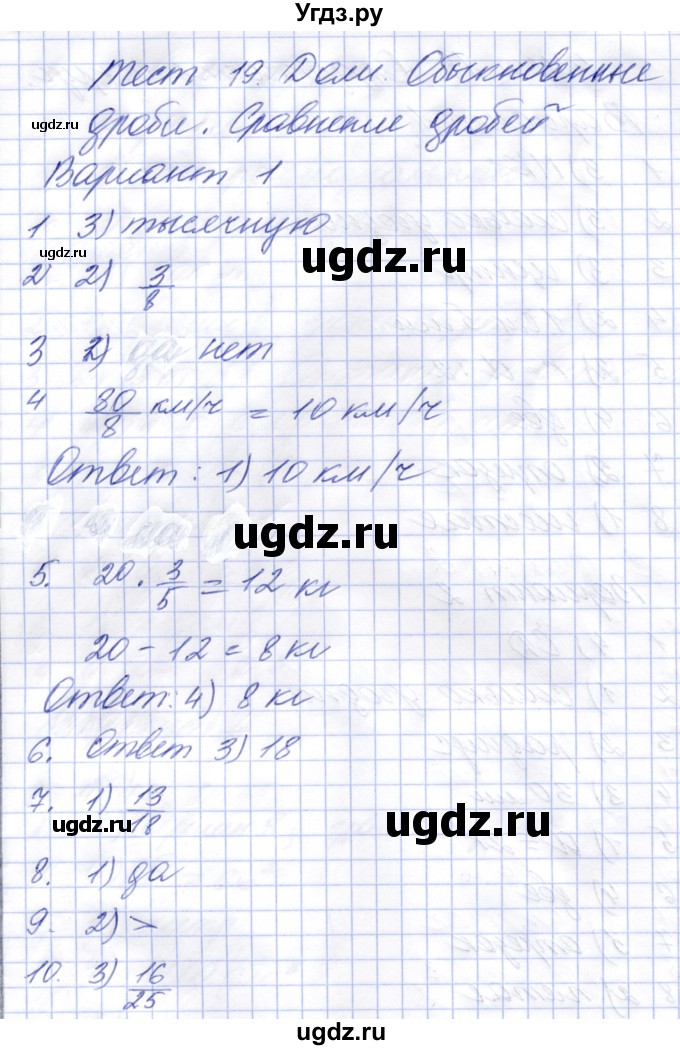 Угдз.ру
Тест 19. Доли. Обыкновенные
ugdz.ru
дроби. Сравнение дробей
Вариант 1
1 3) тысячную
ugdz.ru
ugdz.ru
2 2) 3/8
3 2) нет
4 80/8 км/ч = 10 км/ч
Ответ: 1) 10 км/ч
ugdz.ru
5. 20 · 3/5 = 12 кг
20 - 12 = 8 кг
Ответ: 4) 8 кг
6. Ответ 3) 18
7. 1) 13/18
ugdz.ru
ugdz.ru
8. 1) да
9. 2) >
10. 3) 16/25
ugdz.ru